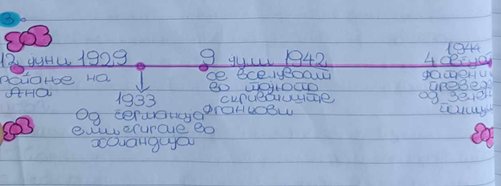 3
12 јуни 1929
раѓање на
Ана
1933
Од германија
емигрирале во
холандија
9 јули 1942
се вселуваат
во тајното
скривалиште
франкови
1944
4 август
од